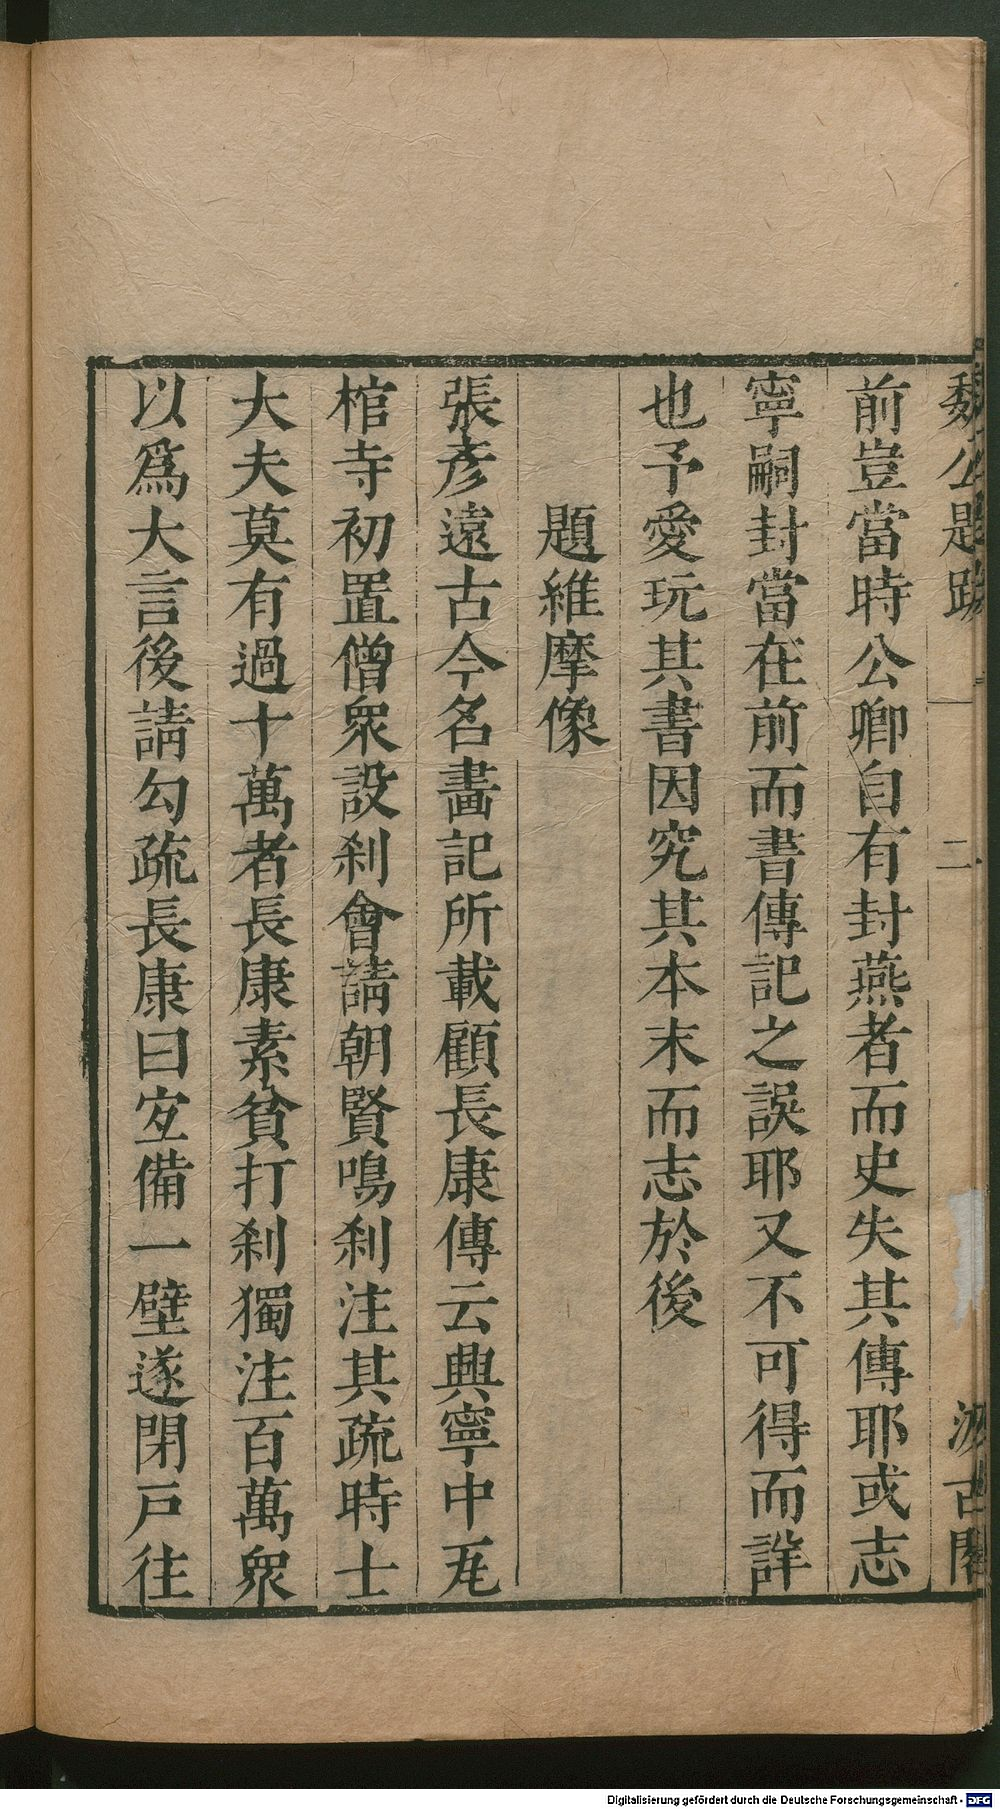 魏公題跋 二 汲古閣
前豈當時公卿自有封燕者而史失其傳耶或志
寧嗣封當在前而書傳記之誤耶又不可得而詳
也予愛玩其書因究其本末而志於後
題維摩像
張彥遠古今名畵記所載顧長康傳云興寧中瓦
棺寺初置僧衆設刹會請朝賢鳴刹注其疏時士
大夫莫有過十萬者長康素貧打刹獨注百萬衆
以爲大言後請勾疏長康曰宐備一壁遂閉戸往
Digitalisierung gefördert durch die Deutsche Forschungsgemeinschaft - DFG